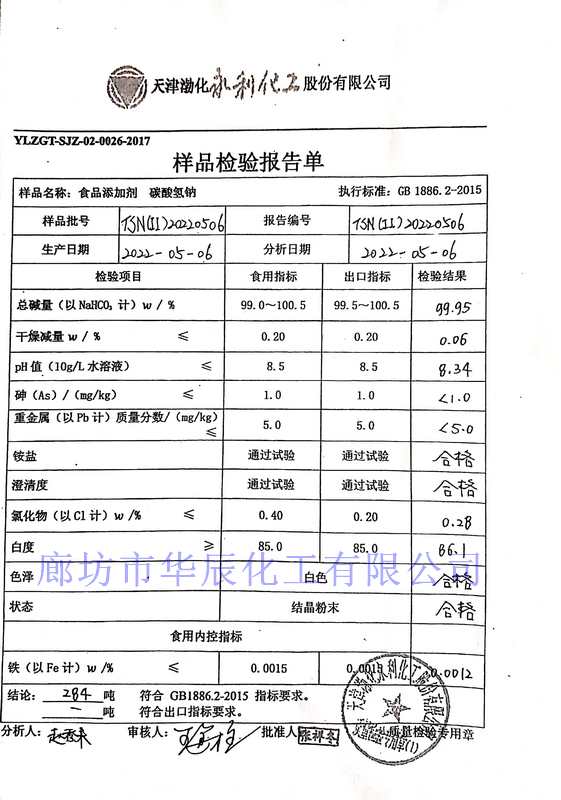 天津渤化永利化工股份有限公司
YLZGT-SJZ-02-0026-2017
样品检验报告单
样品名称：食品添加剂 碳酸氢钠 执行标准：GB 1886.2-2015
样品批号 TSN(II)20220506 报告编号 TSN(II)20220506
生产日期 2022-05-06 分析日期 2022-05-06
检验项目 食用指标 出口指标 检验结果
总碱量（以NaHCO₃计）w / % 99.0～100.5 99.5～100.5 99.95
干燥减量 w / % ≤ 0.20 0.20 0.06
pH值（10g/L水溶液） ≤ 8.5 8.5 8.34
砷（As）/（mg/kg） ≤ 1.0 1.0 <1.0
重金属（以Pb计）质量分数/（mg/kg） ≤ 5.0 5.0 <5.0
铵盐 通过试验 通过试验 合格
澄清度 通过试验 通过试验 合格
氯化物（以Cl计）w /% ≤ 0.40 0.20 0.28
白度 ≥ 85.0 85.0 86.1
廊坊市华辰化工有限公司
色泽 白色 合格
状态 结晶粉末 合格
食用内控指标
铁（以Fe计）w /% ≤ 0.0015 0.0015 0.0012
结论： 284 吨 符合 GB1886.2-2015 指标要求。
一 吨 符合出口指标要求。
分析人： 审核人： 批准人 质量检验专用章
天津渤化永利化工股份有限公司